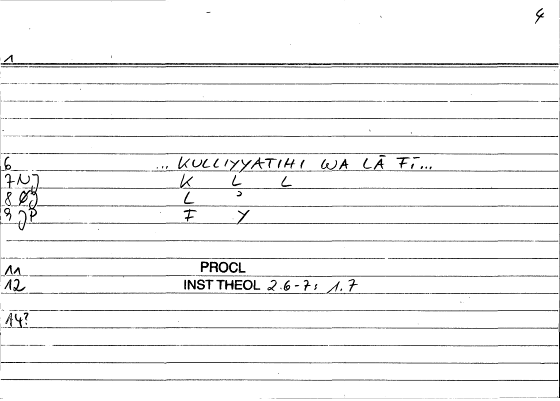 4
1
6 ... KULLIYYATIHI WA LĀ FĪ...
7 NJ K L L
8 ØJ L ʾ
9 JP F Y
11 PROCL
12 INST THEOL 2.6-7; 1.7
14?